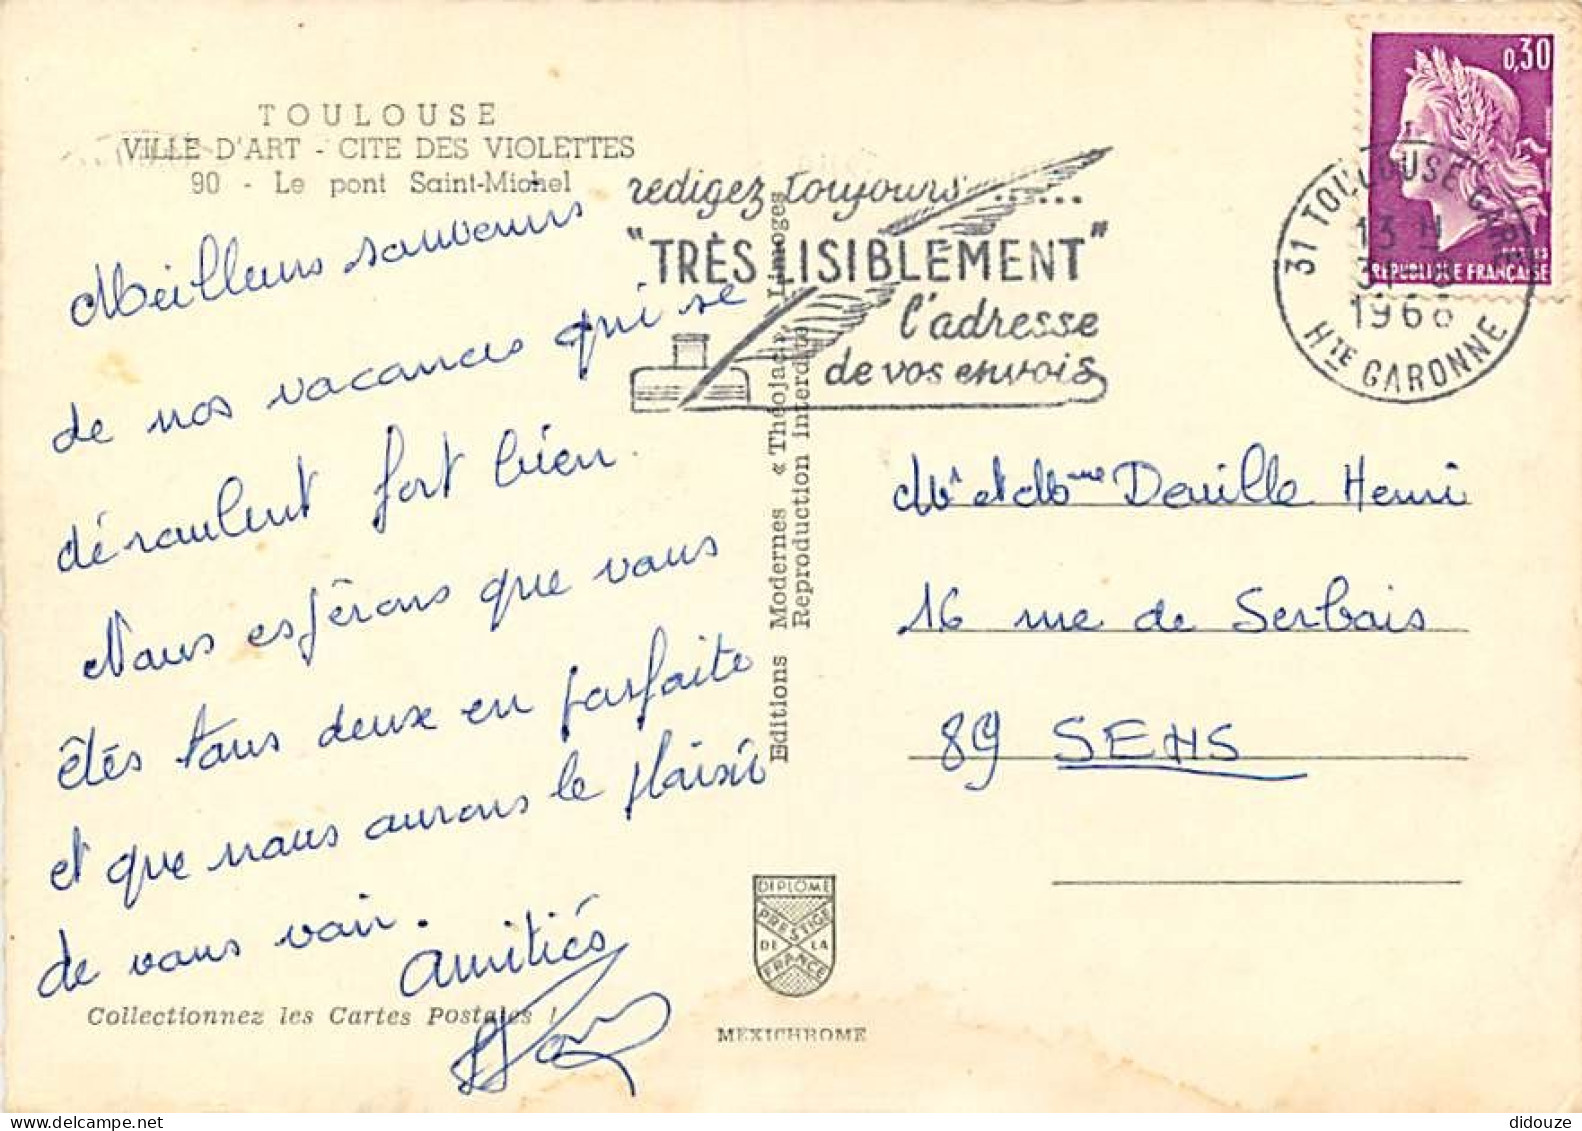 TOULOUSE
VILLE D'ART - CITE DES VIOLETTES
90 - Le pont Saint-Michel
Meilleurs souvenirs
de nos vacances qui se
déroulent fort bien.
Nous espérons que vous
êtés tous deux en parfaite
et que nous aurons le plaisir
de vous voir.
Amitiés
Collectionnez les Cartes Postales !
Editions Modernes « Théojac », Limoges
Reproduction interdite
redigez toujours ......
"TRÈS LISIBLEMENT"
l'adresse
de vos envois
31 TOULOUSE GARE
13 H
31-8
1968
HTE GARONNE
0,30
REPUBLIQUE FRANÇAISE
Mr et Mme Deville Henri
16 rue de Serbois
89 SENS
DIPLOME
PRESTIGE
DE LA
FRANCE
MEXICHROME
didouze